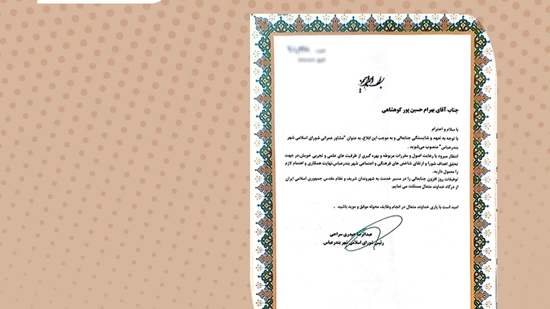 جناب آقای بهرام حسین پور کوهشاهی
با سلام و احترام
با توجه به تعهد و شایستگی جنابعالی و به موجب این ابلاغ به عنوان "مشاور عمرانی شورای اسلامی شهر
بندرعباس" منصوب می‌شوید.
انتظار میرود با رعایت اصول و مقررات مربوطه و بهره گیری از ظرفیت های علمی و تجربی خویش،در جهت
تحقق اهداف شورا و ارتقای شاخص های فرهنگی و اجتماعی شهر بندرعباس،نهایت همکاری و اهتمام لازم
را معمول دارید.
توفیقات روز افزون جنابعالی را در مسیر خدمت به شهروندان شریف و نظام مقدس جمهوری اسلامی ایران
از درگاه خداوند متعال مسئلت می نمایم.
امید است با یاری خداوند متعال در انجام وظایف محوله موفق و موید باشید.
عبدالرضا حیدری سراجی
رئیس شورای اسلامی شهر بندرعباس